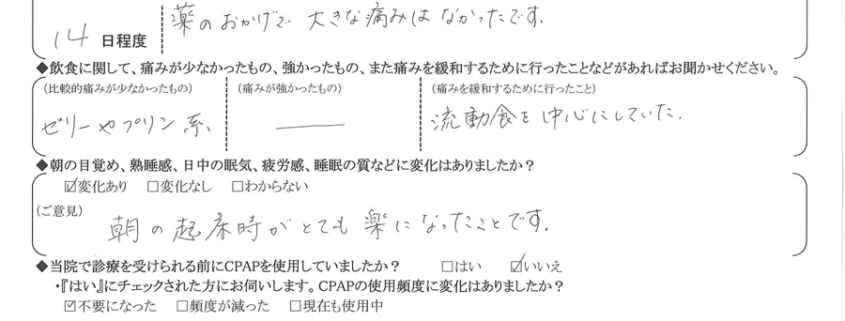 薬のおかげで 大きな痛みは なかったです.
14 日程度
◆飲食に関して、痛みが少なかったもの、強かったもの、また痛みを緩和するために行ったことなどがあればお聞かせください。
(比較的痛みが少なかったもの) (痛みが強かったもの) (痛みを緩和するために行ったこと)
ゼリーやプリン系、 ― 流動食を中心にしていた.
◆朝の目覚め、熟睡感、日中の眠気、疲労感、睡眠の質などに変化はありましたか?
☑変化あり □変化なし □わからない
(ご意見)
朝の起床時がとても楽になったことです.
◆当院で診療を受けられる前にCPAPを使用していましたか? □はい ☑いいえ
・『はい』にチェックされた方にお伺いします。CPAPの使用頻度に変化はありましたか?
☑不要になった □頻度が減った □現在も使用中